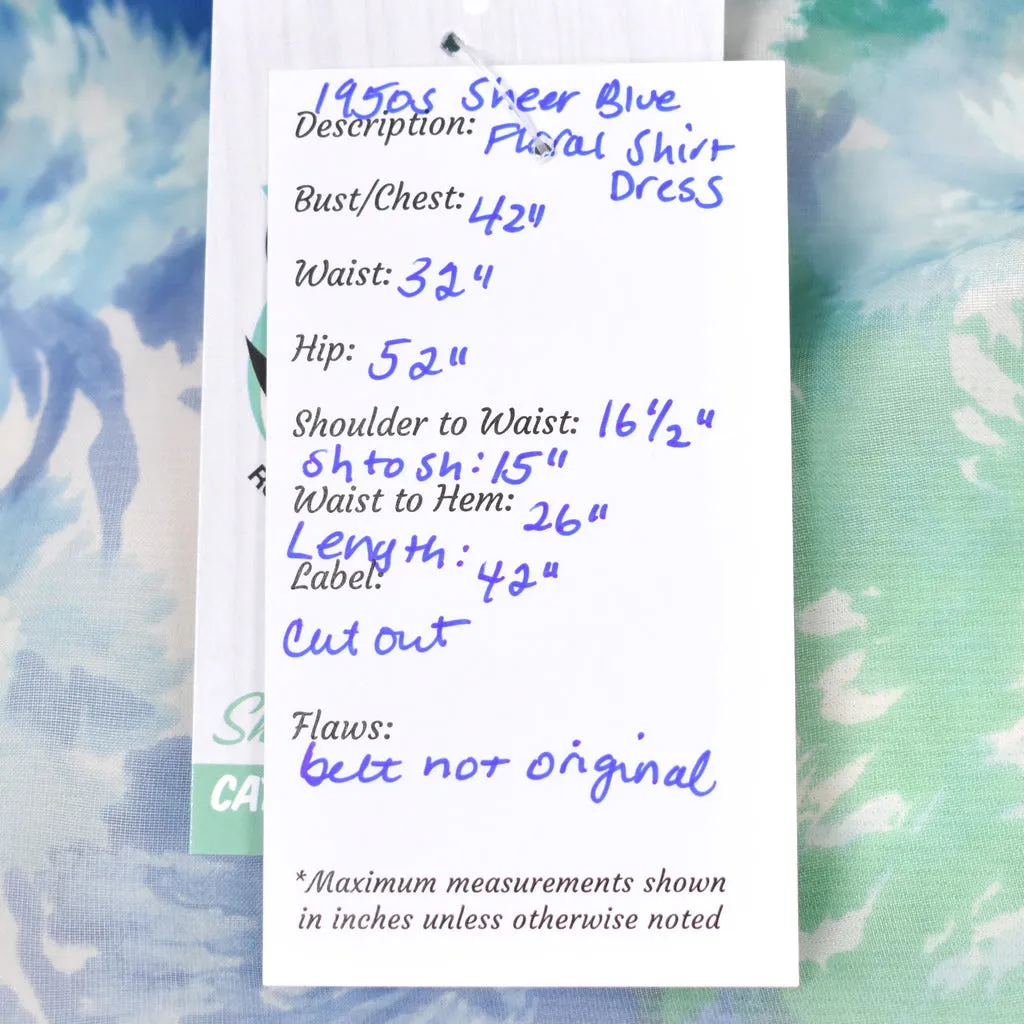 1950s Sheer Blue
Description: Floral Shirt
Dress
Bust/Chest: 42"
Waist: 32"
Hip: 52"
Shoulder to Waist: 16 1/2"
Sh to sh: 15"
Waist to Hem: 26"
Length: 42"
Label:
Cut out
Flaws:
belt not original
*Maximum measurements shown
in inches unless otherwise noted